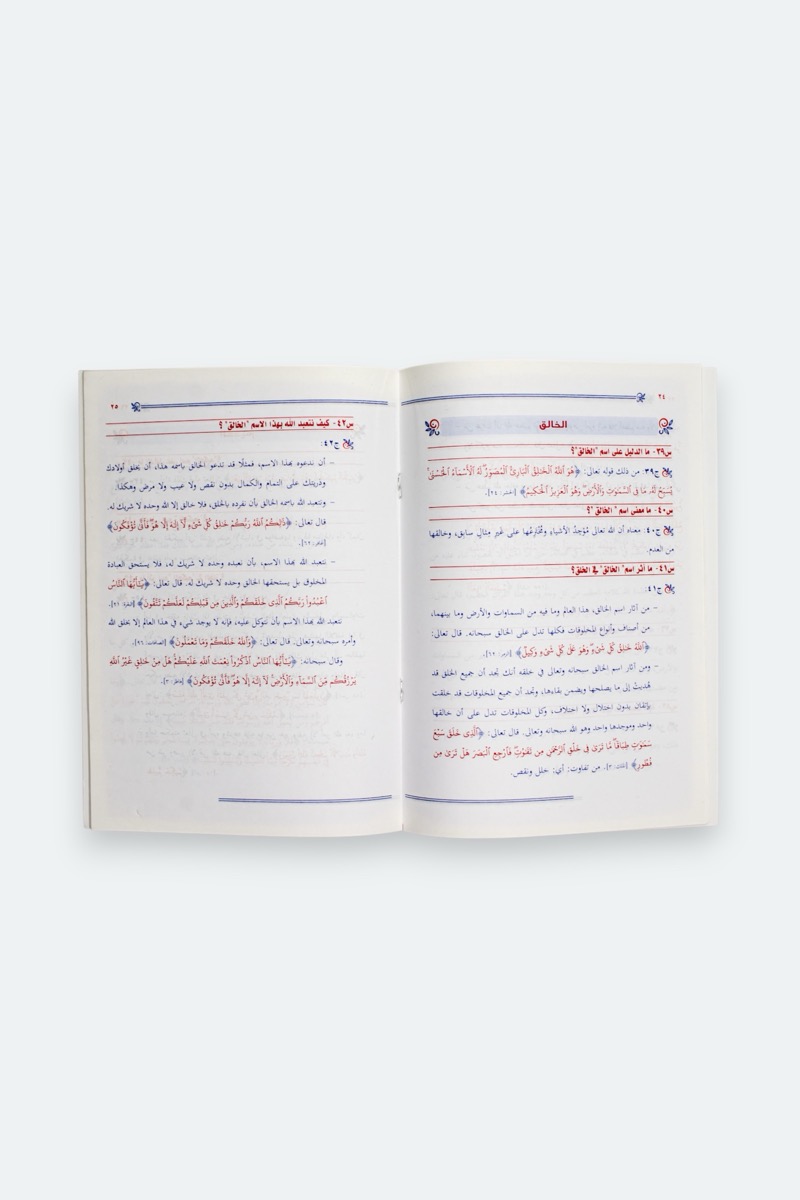 ٢٤
الخالق
س٣٩- ما الدليل على اسم "الخالق"؟
ج٣٩: من ذلك قوله تعالى: ﴿هُوَ ٱللَّهُ ٱلْخَٰلِقُ ٱلْبَارِئُ ٱلْمُصَوِّرُ لَهُ ٱلْأَسْمَآءُ ٱلْحُسْنَىٰ
يُسَبِّحُ لَهُۥ مَا فِى ٱلسَّمَٰوَٰتِ وَٱلْأَرْضِ وَهُوَ ٱلْعَزِيزُ ٱلْحَكِيمُ﴾ [الحشر: ٢٤].
س٤٠- ما معنى اسم "الخالق"؟
ج٤٠: معناه أن الله تعالى مُوْجِدُ الأشياءِ ومُخْتَرِعُها على غَيرِ مِثالٍ سابق، وخالقها
من العدم.
س٤١- ما أثر اسم "الخالق" في الخلق؟
ج٤١:
- من آثار اسم الخالق، هذا العالم وما فيه من السماوات والأرض وما بينهما،
من أصناف وأنواع المخلوقات فكلها تدل على الخالق سبحانه. قال تعالى:
﴿ٱللَّهُ خَٰلِقُ كُلِّ شَىْءٍ وَهُوَ عَلَىٰ كُلِّ شَىْءٍ وَكِيلٌ﴾ [الزمر: ٦٢].
- ومن آثار اسم الخالق سبحانه وتعالى في خلقه أنك تجد أن جميع الخلق قد
هُدِيتْ إلى ما يصلحها ويضمن بقاءها، وتجد أن جميع المخلوقات قد خلقت
بإتقان بدون اختلال ولا اختلاف، وكل المخلوقات تدل على أن خالقها
واحد وموجدها واحد وهو الله سبحانه وتعالى. قال تعالى: ﴿ٱلَّذِى خَلَقَ سَبْعَ
سَمَٰوَٰتٍ طِبَاقًا مَّا تَرَىٰ فِى خَلْقِ ٱلرَّحْمَٰنِ مِن تَفَٰوُتٍ فَٱرْجِعِ ٱلْبَصَرَ هَلْ تَرَىٰ مِن
فُطُورٍ﴾ [الملك: ٣]. من تفاوت: أي: خلل ونقص.
٢٥
س٤٢- كيف نتعبد الله بهذا الاسم "الخالق"؟
ج٤٢:
- أن ندعوه بهذا الاسم، فمثلًا قد تدعو الخالق باسمه هذا، أن يخلق أولادك
وذريتك على التمام والكمال بدون نقص ولا عيب ولا مرض وهكذا.
- ونتعبد الله باسمه الخالق بأن نفرده بالخلق، فلا خالق إلا الله وحده لا شريك له.
قال تعالى: ﴿ذَٰلِكُمُ ٱللَّهُ رَبُّكُمْ خَٰلِقُ كُلِّ شَىْءٍ لَّآ إِلَٰهَ إِلَّا هُوَ فَأَنَّىٰ تُؤْفَكُونَ﴾
[غافر: ٦٢].
- نتعبد الله بهذا الاسم، بأن نعبده وحده لا شريك له، فلا يستحق العبادة
المخلوق بل يستحقها الخالق وحده لا شريك له. قال تعالى: ﴿يَٰٓأَيُّهَا ٱلنَّاسُ
ٱعْبُدُوا۟ رَبَّكُمُ ٱلَّذِى خَلَقَكُمْ وَٱلَّذِينَ مِن قَبْلِكُمْ لَعَلَّكُمْ تَتَّقُونَ﴾ [البقرة: ٢١].
نتعبد الله بهذا الاسم بأن نتوكل عليه، فإنه لا يوجد شيء في هذا العالم إلا بخلق الله
وأمره سبحانه وتعالى. قال تعالى: ﴿وَٱللَّهُ خَلَقَكُمْ وَمَا تَعْمَلُونَ﴾ [الصافات: ٩٦].
وقال سبحانه: ﴿يَٰٓأَيُّهَا ٱلنَّاسُ ٱذْكُرُوا۟ نِعْمَتَ ٱللَّهِ عَلَيْكُمْ هَلْ مِنْ خَٰلِقٍ غَيْرُ ٱللَّهِ
يَرْزُقُكُم مِّنَ ٱلسَّمَآءِ وَٱلْأَرْضِ لَآ إِلَٰهَ إِلَّا هُوَ فَأَنَّىٰ تُؤْفَكُونَ﴾ [فاطر: ٣].